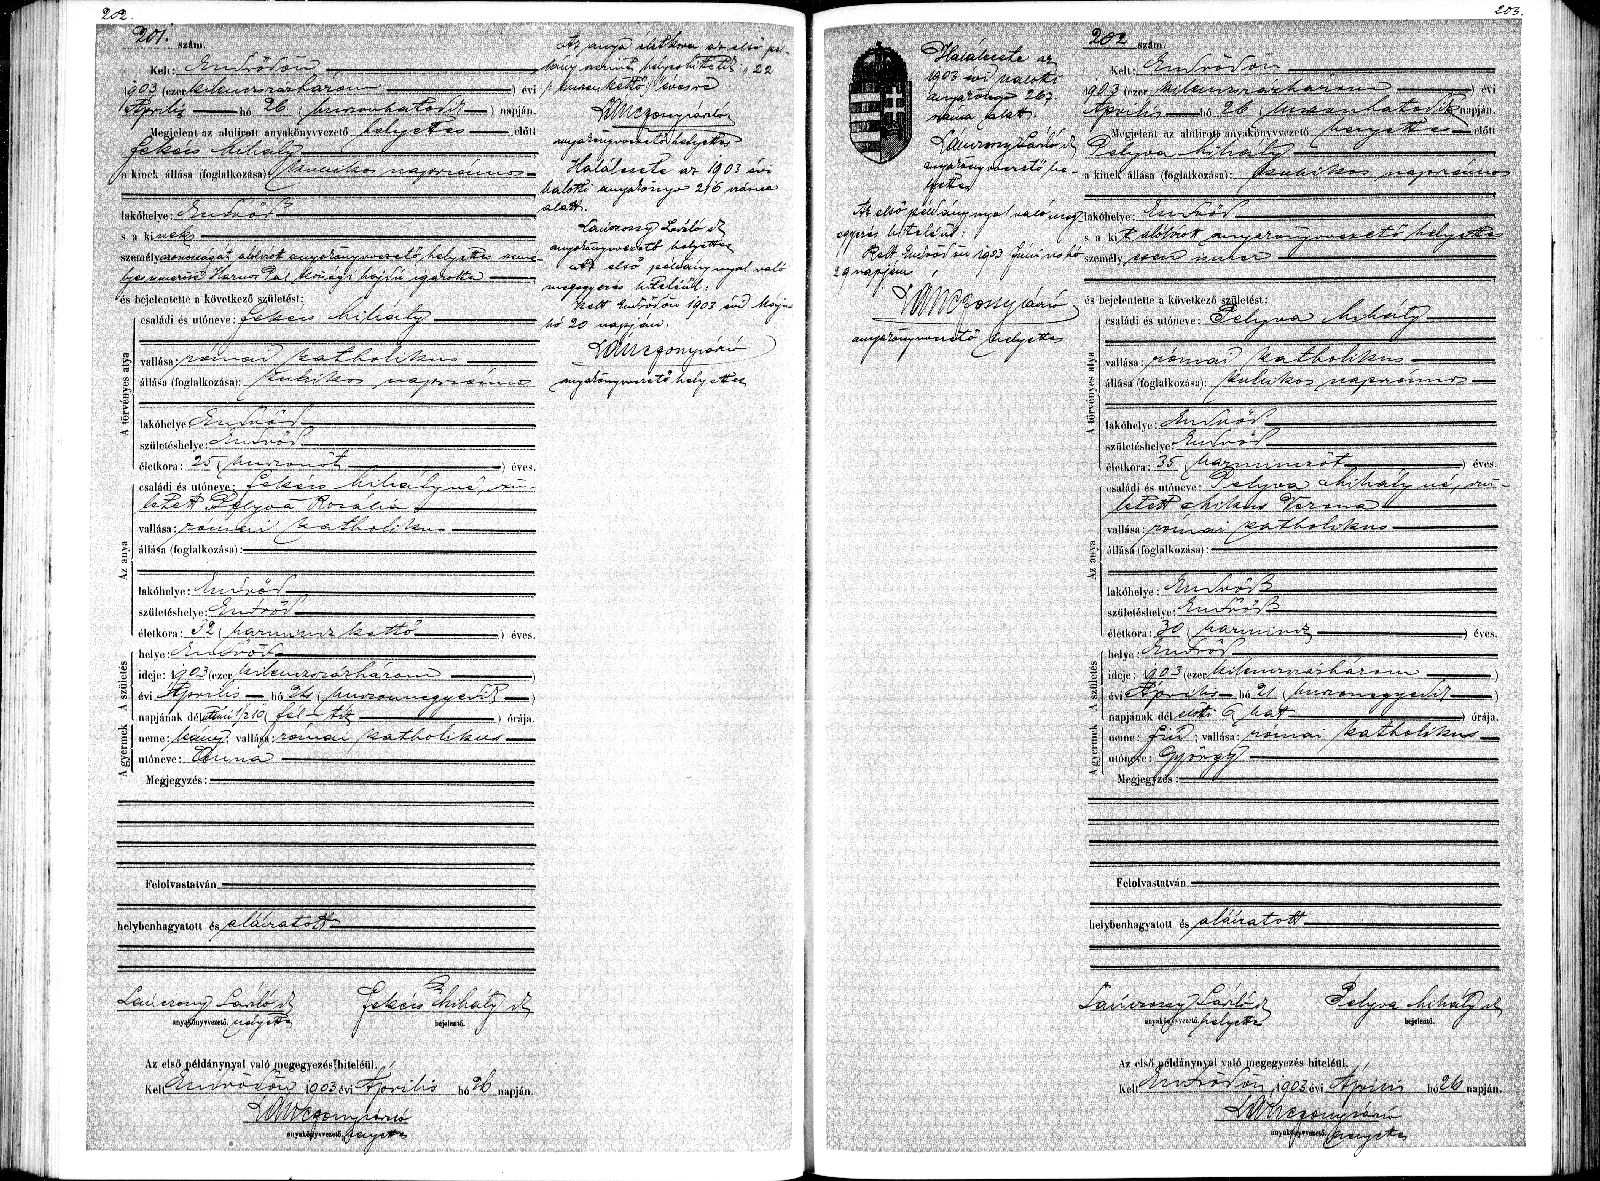 202.
201. szám.
Kelt: Endrődön
1903 (ezer kilenczszázhárom) évi
Április hó 26 (huszonhatodik) napján.
Megjelent az alulirott anyakönyvvezető helyettes előtt
Fekécs Mihály
a kinek állása (foglalkozása): kubikos napszámos
lakóhelye: Endrőd
s a kinek
személyazonosságát alólirt anyakönyvvezető helyettes
által ismert Pál községi hajdú igazolta
és bejelentette a következő születést:
A törvényes atya
családi és utóneve: Fekécs Mihály
vallása: római katholikus
állása (foglalkozása): kubikos napszámos
lakóhelye Endrőd
születéshelye: Endrőd
életkora: 25 (huszonöt) éves.
Az anya
családi és utóneve: Fekécs Mihályné, szü-
letett Pelyva Rozália
vallása: római katholikus
állása (foglalkozása):
lakóhelye: Endrőd
születéshelye: Endrőd
életkora: 32 (harminczkettő) éves.
A születés
helye: Endrőd
ideje: 1903 (ezer kilenczszázhárom
évi Április hó 24 (huszonnegyedik)
napjának délelőtti 1/2 10 (fél tíz) órája.
A gyermek
neme: leány, vallása: római katholikus
utóneve: Anna
Megjegyzés:
Felolvastatván
helybenhagyatott és aláiratott
Lánczony László Fekécs Mihály
anyakönyvvezető helyettes bejelentő.
Az első példánynyal való megegyezés hiteléül.
Kelt Endrődön 1903 évi Április hó 26 napján.
Lánczony László
anyakönyvvezető helyettes
Az anya életkora az első pél-
dány szerint helyesbittetik, 22
(huszonkettő) évesre
Lánczony László
anyakönyvvezető helyettes
Haláleste az 1903 évi
halotti anyakönyv 216 száma
alatt.
Lánczony László
anyakönyvvezető helyettes
Az első példánynyal való
megegyezés hiteléül:
Kelt Endrődön 1903 évi Május
hó 20 napján.
Lánczony László
anyakönyvvezető helyettes
203.
Haláleste az
1903 évi halotti
anyakönyv 267
száma alatt.
Lánczony László
anyakönyvvezető he-
lyettes
Az első példánynyal való meg-
egyezés hiteléül:
Kelt Endrődön 1903 június hó
29 napján
Lánczony László
anyakönyvvezető helyettes
202 szám
Kelt: Endrődön
1903 (ezer kilenczszázhárom) évi
Április hó 26 (huszonhatodik napján.
Megjelent az alulirott anyakönyvvezető helyettes előtt
Pelyva Mihály
a kinek állása (foglalkozása): kubikos napszámos
lakóhelye: Endrőd
s a kit alólirott anyakönyvvezető helyettes
személyesen ismer
és bejelentette a következő születést:
A törvényes atya
családi és utóneve: Pelyva Mihály
vallása: római katholikus
állása (foglalkozása): kubikos napszámos
lakóhelye: Endrőd
születéshelye: Endrőd
életkora: 35 (harminczöt) éves.
Az anya
családi és utóneve: Pelyva Mihályné, szü-
letett Mikus Verona
vallása: római katholikus
állása (foglalkozása):
lakóhelye: Endrőd
születéshelye: Endrőd
életkora: 30 (harmincz) éves.
A születés
helye: Endrőd
ideje: 1903 (ezer kilenczszázhárom
évi Április hó 24 (huszonnegyedik)
napjának délelőtti 6 hat) órája.
A gyermek
neme: fiú; vallása: római katholikus
utóneve: György
Megjegyzés:
Felolvastatván
helybenhagyatott és aláiratott
Lánczony László Pelyva Mihály
anyakönyvvezető. helyettes bejelentő.
Az első példánynyal való megegyezés hiteléül.
Kelt Endrődön, 1903 évi Április hó 26 napján.
Lánczony László
anyakönyvvezető. helyettes